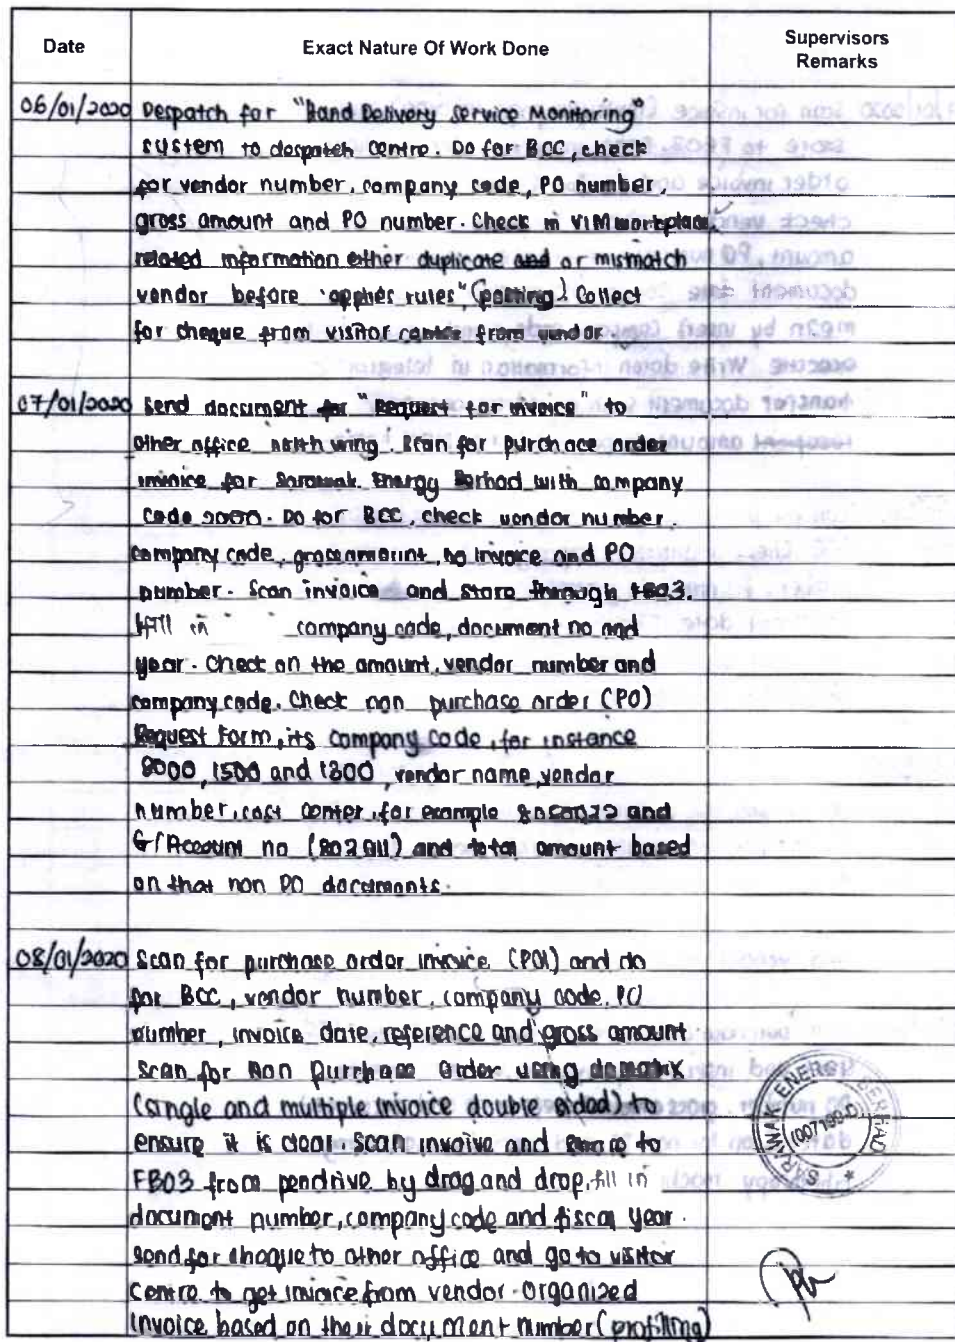 Date
Exact Nature Of Work Done
Supervisors
Remarks
06/01/2020 Despatch for "Hand Delivery Service Monitoring"
system to despatch centre. Do for BCC, check
for vendor number, company code, PO number,
gross amount and PO number. Check in VIM workplace
related information either duplicate and or mismatch
vendor before "applies rules" (posting). Collect
for cheque from visitor centre from vendor.
07/01/2020 Send document for "Request for invoice" to
other office north wing. Scan for purchace order
invoice for Sarawak Energy Berhad with company
Code 2000. Do for BCC, check vendor number,
company code, gross amount, no invoice and PO
number. Scan invoice and store through FB03.
Fill in company code, document no and
year. Check on the amount, vendor number and
company code. Check non purchase order (PO)
Request Form, its company code, for instance
8000, 1500 and 1300, vendor name, vendor
number, cost center, for example and
G/Account no and total amount based
on that non PO documents.
08/01/2020 Scan for purchase order invoice (POI) and do
for BCC, vendor number, company code, PO
number, invoice date, reference and gross amount
Scan for Non Purchase Order using
(single and multiple invoice double sided) to
ensure it is clear. Scan invoive and store to
FB03 from pendrive by drag and drop, fill in
document number, company code and fiscal year.
Send for cheque to other office and go to visitor
Centre to get invoice from vendor. Organized
invoice based on their document number (profilling)
SARAWAK ENERGY BERHAD
(007199-D)